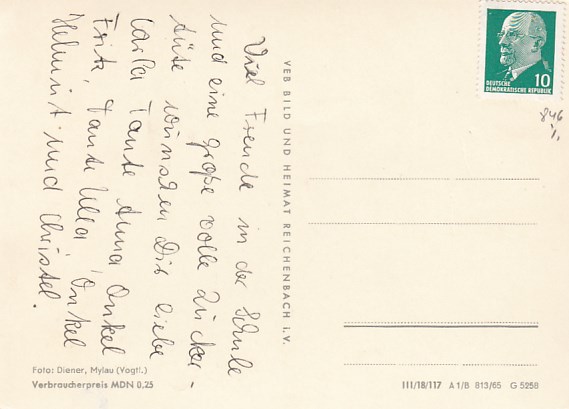 Viel Freude in der Schule
und eine große volle Zucker-
tüte wünschen Dir liebe
Carla Tante Anna, Onkel
Fritz, Tante Ulla, Onkel
Helmut und Christel.
VEB BILD UND HEIMAT REICHENBACH I.V.
10
DEUTSCHE
DEMOKRATISCHE REPUBLIK
846
Foto: Diener, Mylau (Vogtl.)
Verbraucherpreis MDN 0,25
III/18/117 A 1/B 813/65 G 5258